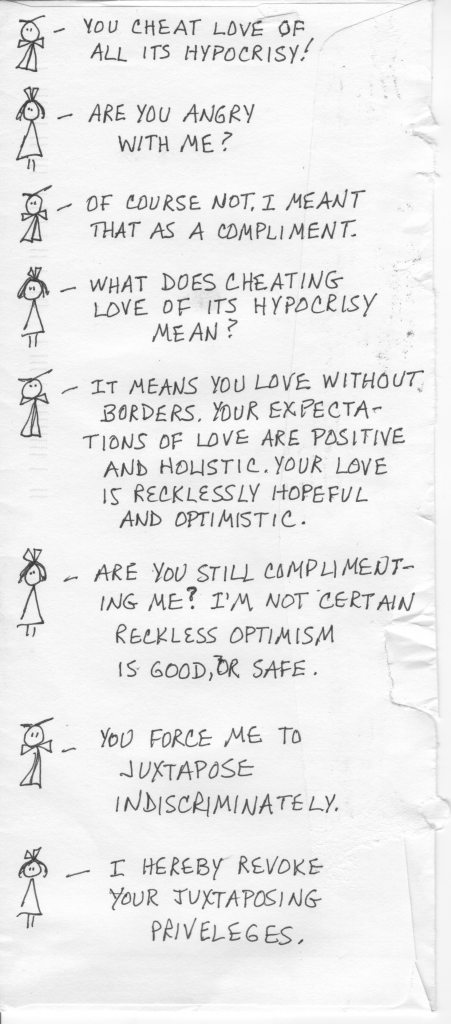 - YOU CHEAT LOVE OF
ALL ITS HYPOCRISY!
- ARE YOU ANGRY
WITH ME?
- OF COURSE NOT. I MEANT
THAT AS A COMPLIMENT.
- WHAT DOES CHEATING
LOVE OF ITS HYPOCRISY
MEAN?
- IT MEANS YOU LOVE WITHOUT
BORDERS. YOUR EXPECTA-
TIONS OF LOVE ARE POSITIVE
AND HOLISTIC. YOUR LOVE
IS RECKLESSLY HOPEFUL
AND OPTIMISTIC.
- ARE YOU STILL COMPLIMENT-
ING ME? I'M NOT CERTAIN
RECKLESS OPTIMISM
IS GOOD, OR SAFE.
- YOU FORCE ME TO
JUXTAPOSE
INDISCRIMINATELY.
- I HEREBY REVOKE
YOUR JUXTAPOSING
PRIVELEGES.